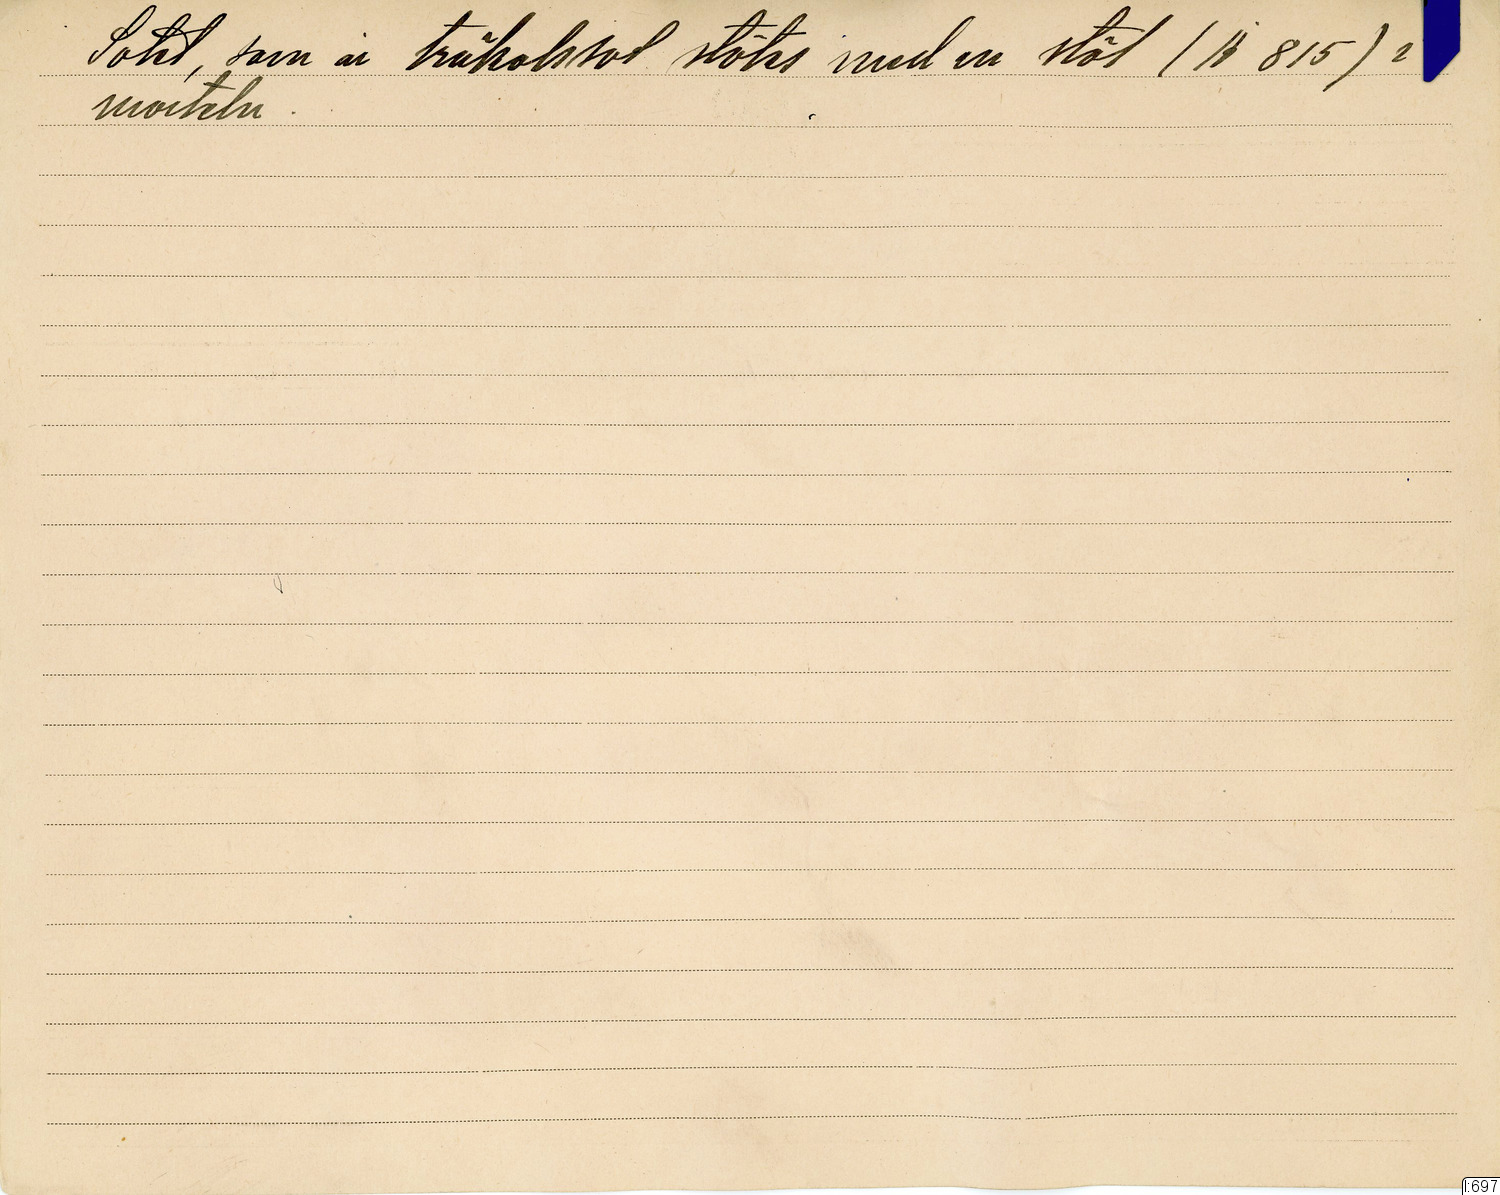 Sotet, som är träkolssot stötes med en stöt ( B 815 ) i
morteln.
I:697